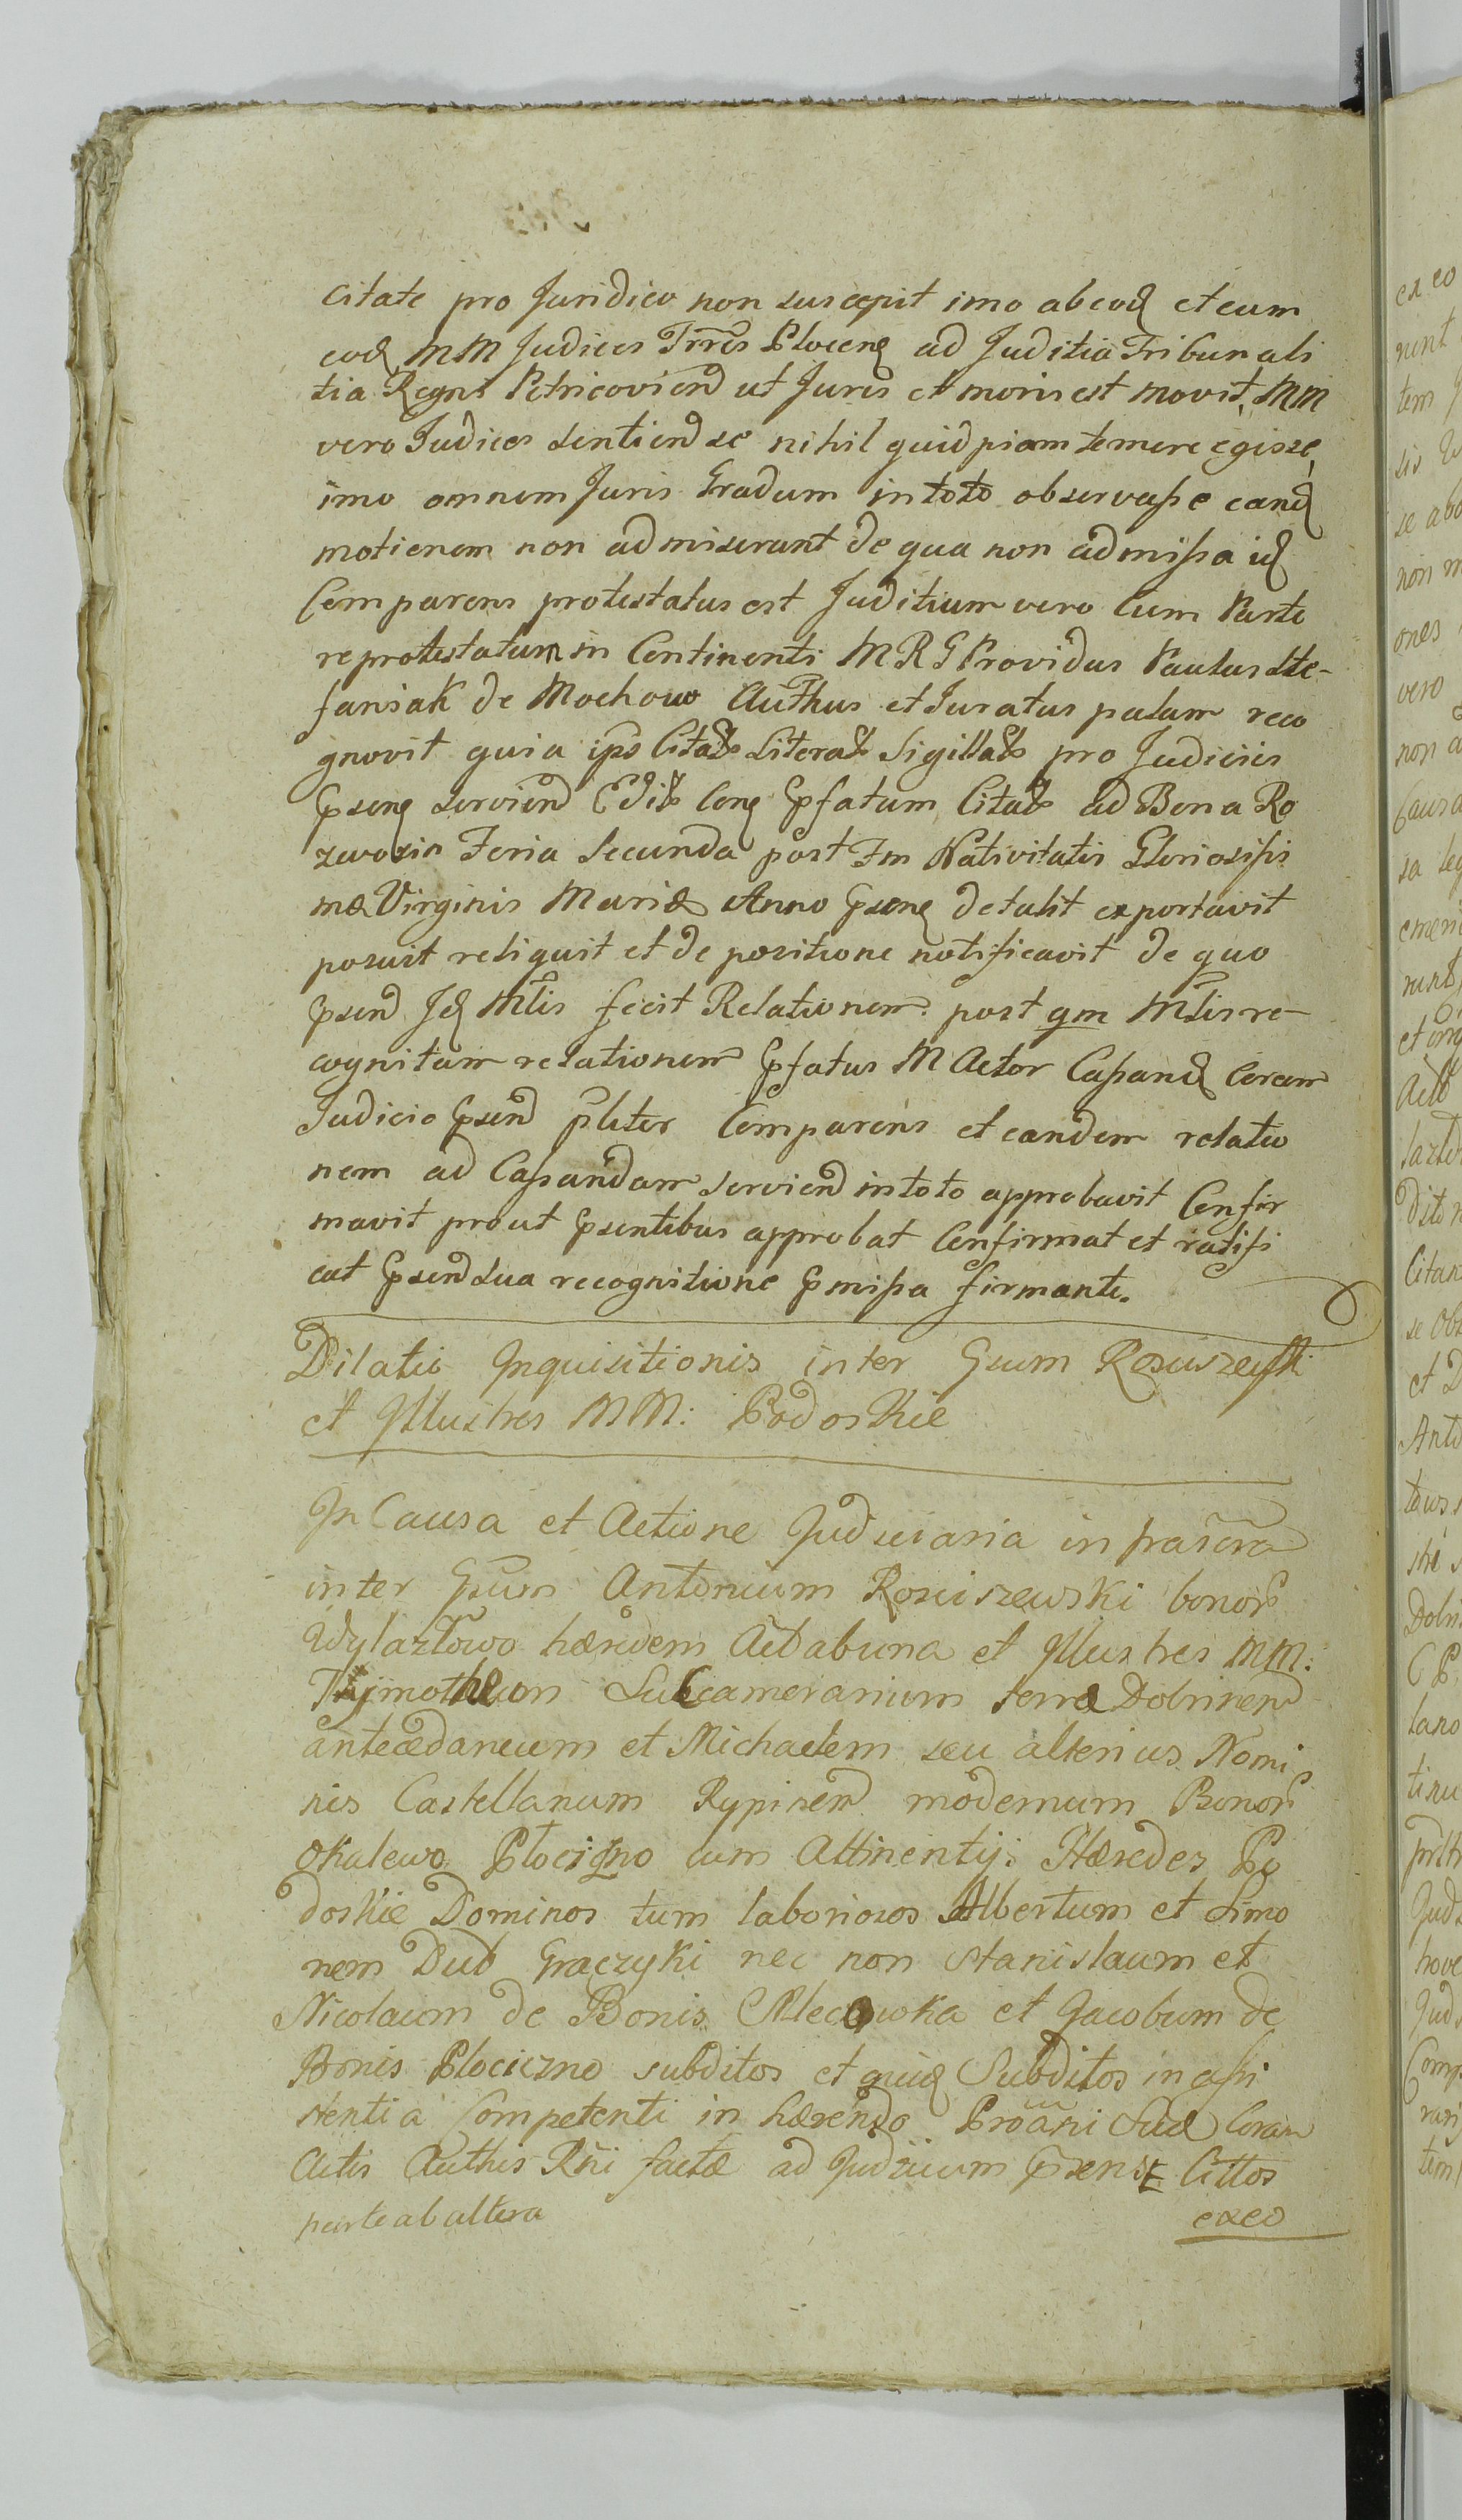 citate pro Juridico non suscepit imo ab eod et cum
eod MM Judices Trres Plocen ad Juditia Tribunali
tia Regni Petricoviend ut Juris et moris est movit, MM
vero Judices sentiend se nihil quidpiam temere egisse,
imo omnem Juris Gradum in toto observasse eand
motionem non admiserunt de qua non admissa id
Comparens protestatus est Juditium vero Cum Parte
reprotestatum in Continenti MRG Providus Paulus Ste-
faniak de Mochowo Authus et Juratus palam reco
gnovit quia ipse Citaões Literaões Sigillaões pro Judiciis
Psenq serviend Edites Conq Pfatum Citaões ad Bona Ro
zwozin Feria Secunda post Fm Nativitatis Gloriosissi
mæ Virginis Mariæ Anno Psenq detulit exportavit
posuit reliquit et de positione notificavit de quo
Psend Jd Mtlis fecit Relationem post qm Mtlis re-
cognitam relationem Pfatus M Actor Cassand Coram
Judicio Psend pliter Comparens et eandem relatio
nem ad Cassandam serviend in toto approbavit Confir
mavit prout Psentibus approbat Confirmat et ratifi
cat Psend sua recognitione Pmissa firmante.
Dilatio Inquisitionis inter Gsum Rosciszewski
et Illustres MM: Podoskie
In Causa et Actione Judiciaria infrascra
inter Gsum Antonium Rosciszewski bonor
Wylazłowo hæredem Actabuna et Illustres MM:
Tymotheon Subcamerarium terræ Dobrinend
antecedaneum et Michaelem seu alterius Nomi
nis Castellanum Rypinend modernum Bonor
Okalewo Płociczno cum Attinentij: Hæredes Po
doskie Dominos tum laboriosos Albertum et Simo
nem Dud Graczyki nec non Stanislaum et
Nicolaum de Bonis Mlecowka et Jacobum de
Bonis Plociczno subditos et quid Subditos in assi
stentia Competenti in hærendo Proãni Suæ Coram
Actis Authis Rni factæ ad Judicium Psens Cittos
parte ab altera
ex eo